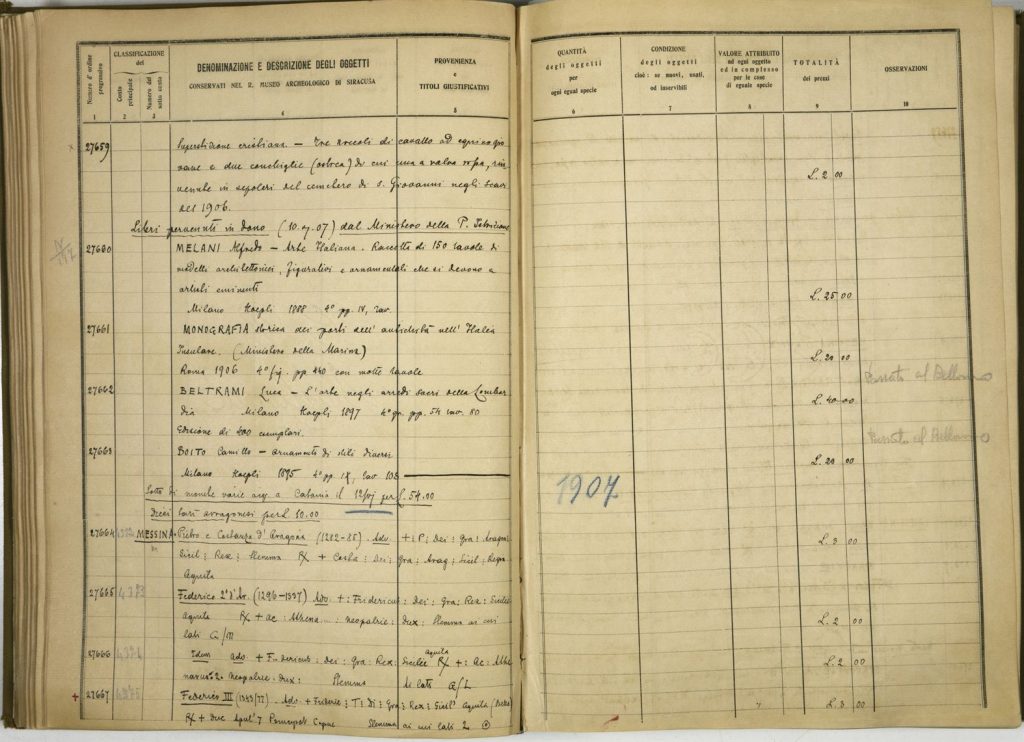 CLASSIFICAZIONE
del
Numero d' ordine progressivo
Conto principale
Numero del sotto conto
DENOMINAZIONE E DESCRIZIONE DEGLI OGGETTI
CONSERVATI NEL R. MUSEO ARCHEOLOGICO DI SIRACUSA
PROVENIENZA
e
TITOLI GIUSTIFICATIVI
1 2 3 4 5
QUANTITÀ
degli oggetti
per
ogni egual specie
CONDIZIONE
degli oggetti
cioè: se nuovi, usati,
od inservibili
VALORE ATTRIBUITO
ad ogni oggetto
ed in complesso
per le cose
di eguale specie
TOTALITÀ
dei prezzi
OSSERVAZIONI
6 7 8 9 10
27659 Superstizione cristiana. — Tre noccoli di cavallo ad
e due conchiglie (ostrea) di cui una a valva
in sepolcri del cimitero di S. Giovanni negli scavi
del 1906.
L. 2 00
Libri pervenuti in dono (10.7.07) dal Ministero della P. Istruzione
27660 MELANI Alfredo — Arte Italiana. Raccolta di 150 tavole di
modelli architettonici, figurativi e ornamentali che si devono a
artisti eminenti
Milano Hoepli 1888 4° pp. IV, tav.
L. 25 00
27661 MONOGRAFIA storica dei porti dell' antichità nell' Italia
Insulare. (Ministero della Marina)
Roma 1906 4° fig. pp. 440 con molte tavole
L. 20 00
27662 BELTRAMI Luca — L'arte negli arredi sacri della Lombar
dia Milano Hoepli 1897 pp. 54 tav. 80
Edizione di 400 esemplari.
L. 40 00
Passato al Bellomo
27663 BOITO Camillo — ornamenti di stili diversi
Milano Hoepli 1895 4° pp. IX, tav
L. 20 00
Passato al Bellomo
Lotto di monete varie arg. a Catania il 12/VI per L. 54.00
1907
Dieci tarì aragonesi per L. 10.00
27664 4382 MESSINA Pietro e Costanza d'Aragona (1282-85) Adv. + : P : Dei : Gra : Aragon :
Sicil : Rex : Stemma Rx + Costa : Dei : Gra : Arag : Sicil : Regin
Aquila
L. 3 00
27665 4383 Federico 2° d'Ar. (1296-1337) Adv. + : Fridericus : Dei : Gra : Rex : Sicilie
aquila Rx + ac : Athena neopatrie : dux : Stemma ai cui
lati G/M
L. 2 00
27666 Idem adv. + F dericus : Dei : Gra : Rex : Sicilie Aquila Rx + : Ac : Athe
Neopatrie . Dux : Stemma ai lati
L. 2 00
27667 Federico III Adv. + Frideric : T : Di : Gra : Rex : Sicil' Aquila
Rx + Duc Apul' 7 Principat Capue Stemma ai cui lati
L. 3 00